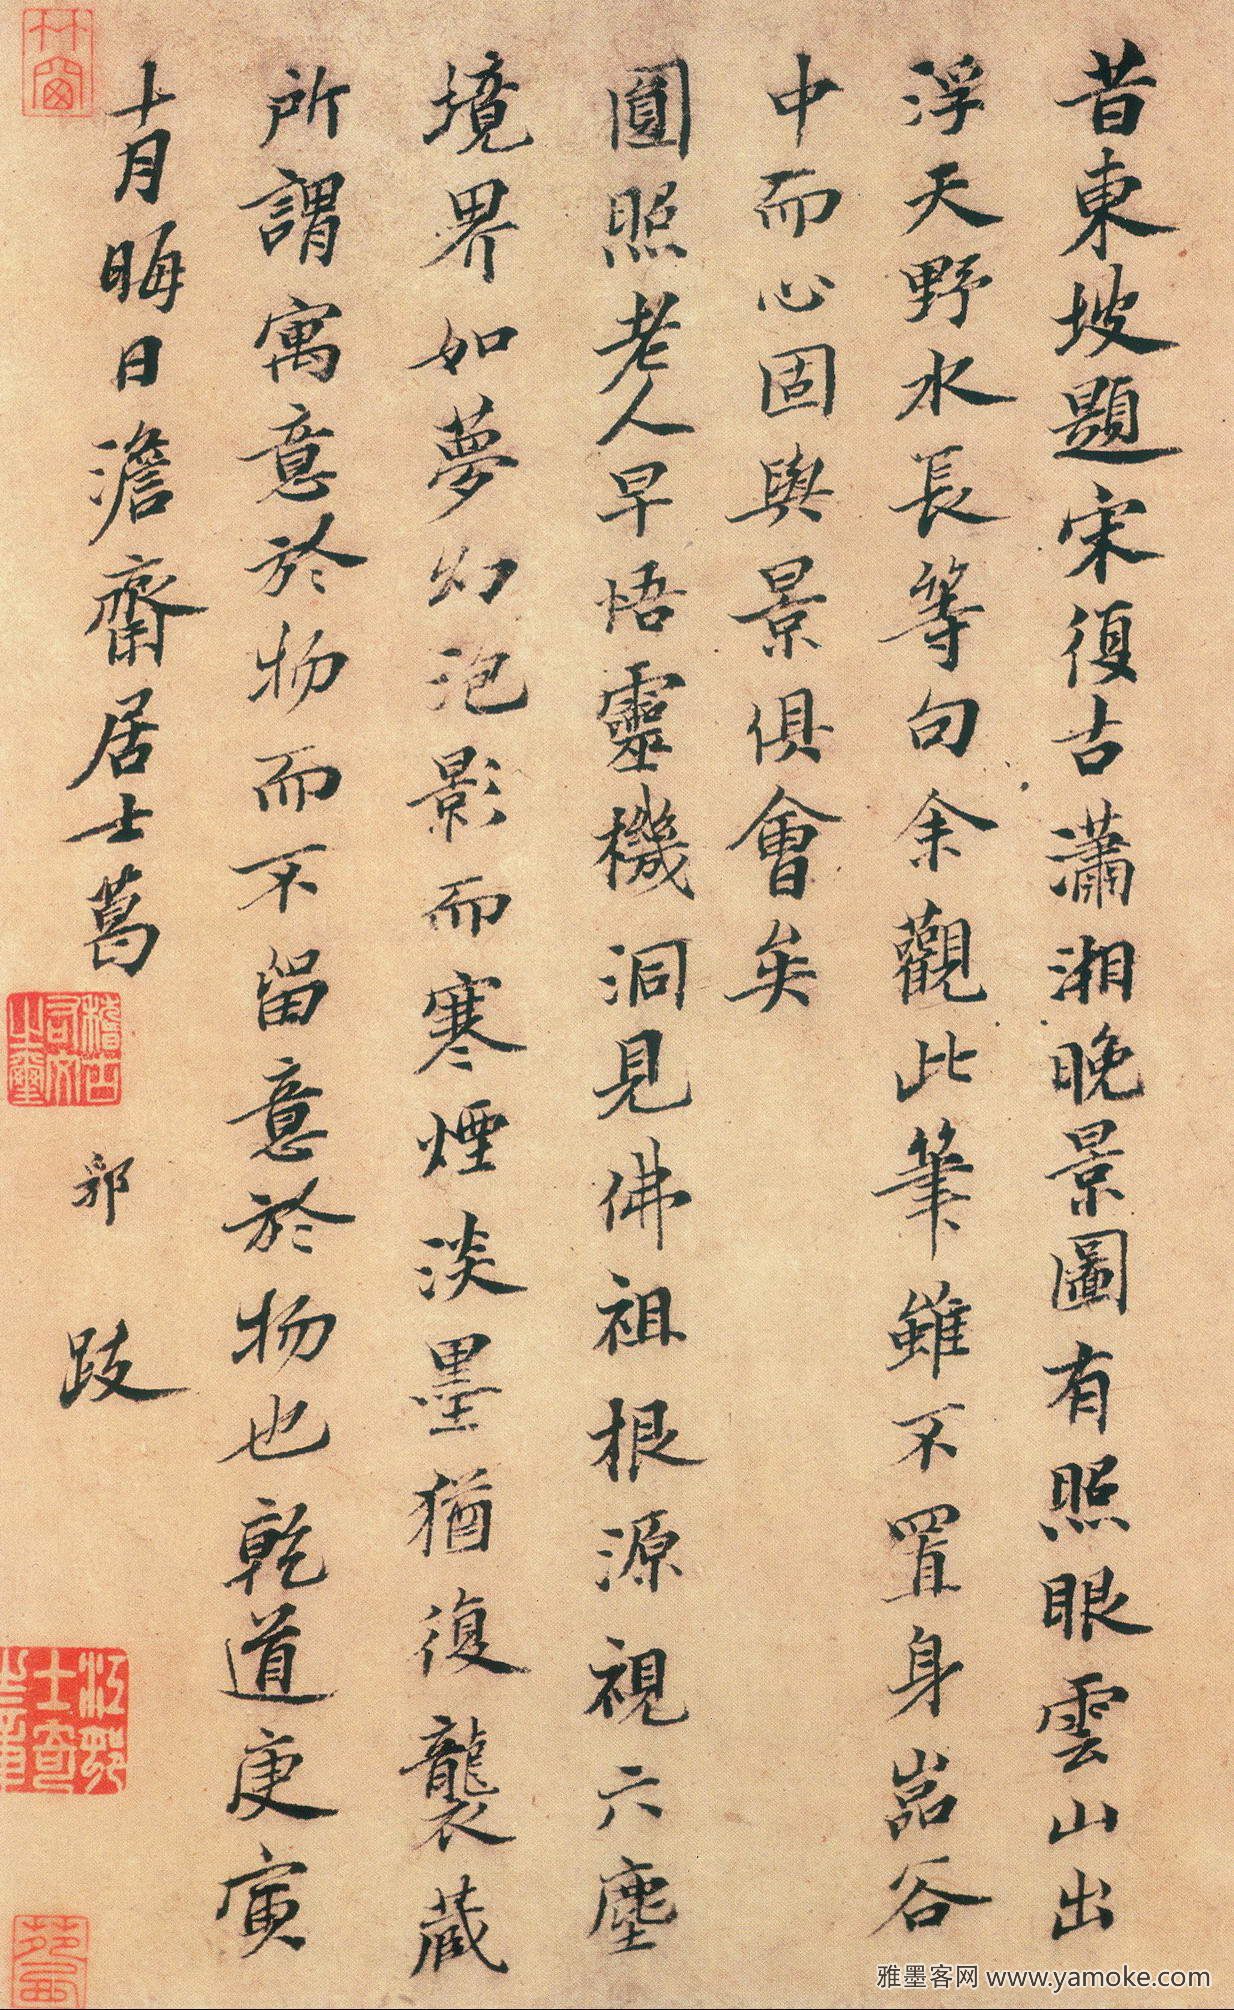 昔東坡題宋復古瀟湘晚景圖有照眼雲山出
浮天野水長等句余觀此筆雖不置身嵓谷
中而心固與景俱會矣
圓照老人早悟靈機洞見佛祖根源視六塵
境界如夢幻泡影而寒煙淡墨猶復襲藏
所謂寓意於物而不留意於物也乾道庚寅
十月晦日澹齋居士葛
郛
跂
雅墨客网 www.yamoke.com